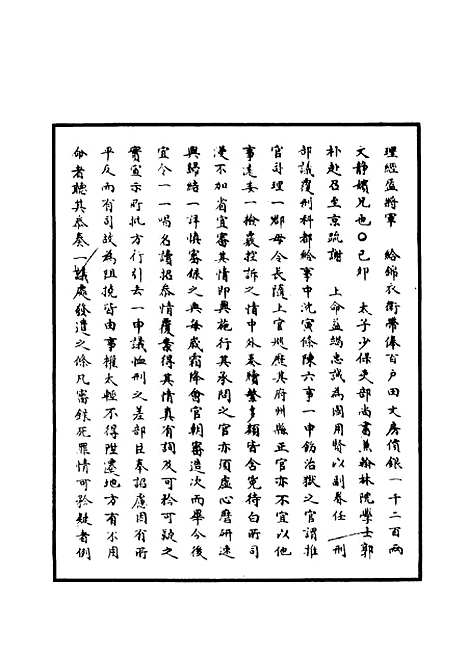 理經益將軍　給錦衣衛帶俸百戶田文房價銀一千二百兩
文靜嬪兄也〇己卯　太子少保吏部尚書兼翰林院學士郭
朴赴召至京疏謝　上命益竭忠誠為國用賢以副眷任　刑
部議覆刑科都給事中沈寅條陳六事一申飭治獄之官謂推
官司理一郡毋令長隨上官巡歷其府州縣正官亦不宜以他
事遠委一檢覈控訴之情中外奏牘繁多類皆含冤待白所司
漫不加省宜審其情即與施行其承問之官亦須虛心磨研速
與歸結一詳慎審錄之典每歲霜降會官朝審造次而畢今後
宜令一一唱名講招參情覆案得其情真有詞及可矜可疑之
實宣示所批方行引去一申議恤刑之差部臣奉詔慮囚有所
平反而有司故為阻撓皆由事權太輕不得陞遠地方有不用
命者聽其參奏一議處發遣之條凡審錄死罪情可矜疑者例